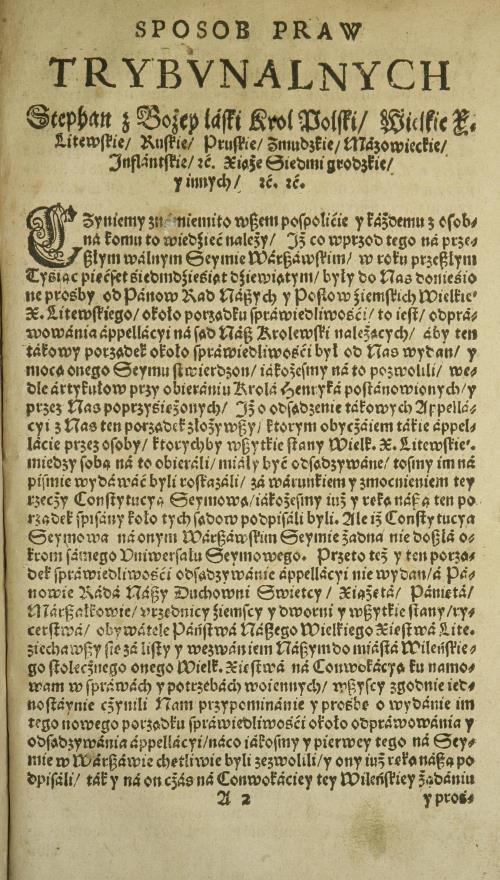 SPOSOB PRAW
TRYBVNALNYCH
Stephan z Bożey łáſki Krol Polſki/ Wielkie X.
Litewſkie/ Ruſkie/ Pruſkie/ Zmudzkie/ Mázowieckie/
Inflántſkie/ ꝛc. Xiąże Siedmigrodzkie/
y innych/ ꝛc. ꝛc.
CZyniemy znamienito wßem poſpolićie y káżdemu z oſob-
ná komu to wiedźieć należy/ Iż co wprzod tego ná prze-
ßłym wálnym Seymie Wárßáwſkim/ w roku przeßłym
Tyſiąc pięćſet śiedmdźieśiąt dźiewiątym/ były do Nas donieśio
ne prośby od Pánow Rad Náßych y Poſłow źiemſkich Wielkie°
X. Litewſkiego/ około porządku ſpráwiedliwośći/ to ieſt/ odprá-
wowánia áppellácyi ná ſąd Náß Krolewſki należących/ áby ten
tákowy porządek około ſpráwiedliwośći był od Nas wydan/ y
mocą onego Seymu ſtwierdzon/ iákożeſmy ná to pozwolili/ we-
dle ártykułow przy obierániu Krolá Henryká poſtánowionych/ y
przez Nas poprzyśiężonych/ Iż o odſądzenie tákowych Appellá-
cyi z Nas ten porządek złożywßy/ ktorym obycżáiem tákie áppel-
lácie przez oſoby/ ktorychby wßytkie ſtany Wielk. X. Litewſkie°.
miedzy ſobą ná to obieráli/ miáły być odſądzywáne/ toſmy im ná
piſmie wydáwáć byli roſkazáli/ zá wárunkiem y zmocnieniem tey
rzecży Conſtytucyą Seymową/ iákożeſmy iuż y ręką náßą ten po
rządek ſpiſány koło tych ſądow podpiſáli byli. Ale iż Conſtytucya
Seymowa ná onym Wárßáwſkim Seymie żadna nie doßłá o-
krom ſámego Vniwerſału Seymowego. Przeto też y ten porzą-
dek ſpráwiedliwośći odſądzywánie áppellácyi nie wydan/ á Pá-
nowie Rádá Náßy Duchowni Swietcy/ Xiążętá/ Pánietá/
Márßałkowie/ vrzednicy źiemſcy y dworni y wßytkie ſtany/ ry-
cerſtwá/ obywátele Páńſtwá Náßego Wielkiego Xięſtwá Lite.
ziechawßy ſie zá liſty y wezwániem Náßym do miáſtá Wileńſkie-
go ſtołecżnego onego Wielk. Xięſtwá ná Conwokácyą ku namo-
wam w ſpráwách y potrzebách woiennych/ wßyſcy zgodnie ied-
noſtáynie cżynili Nam przypominánie y prośbę o wydánie im
tego nowego porządku ſpráwiedliwośći około odpráwowánia y
odſądzywánia áppellácyi/ náco iákoſmy y pierwey tego ná Sey-
mie w Wárßáwie chętliwie byli zezwolili/ y ony iuż ręką náßą po
dpiſáli/ ták y ná on cżás ná Conwokáciey tey Wileńſkiey żądániu
A 2
y proś-